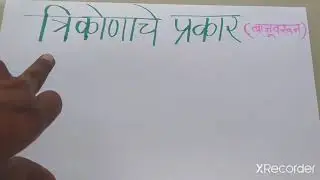 त्रिकोणाचे प्रकार (बाजूवरून)
XRecorder